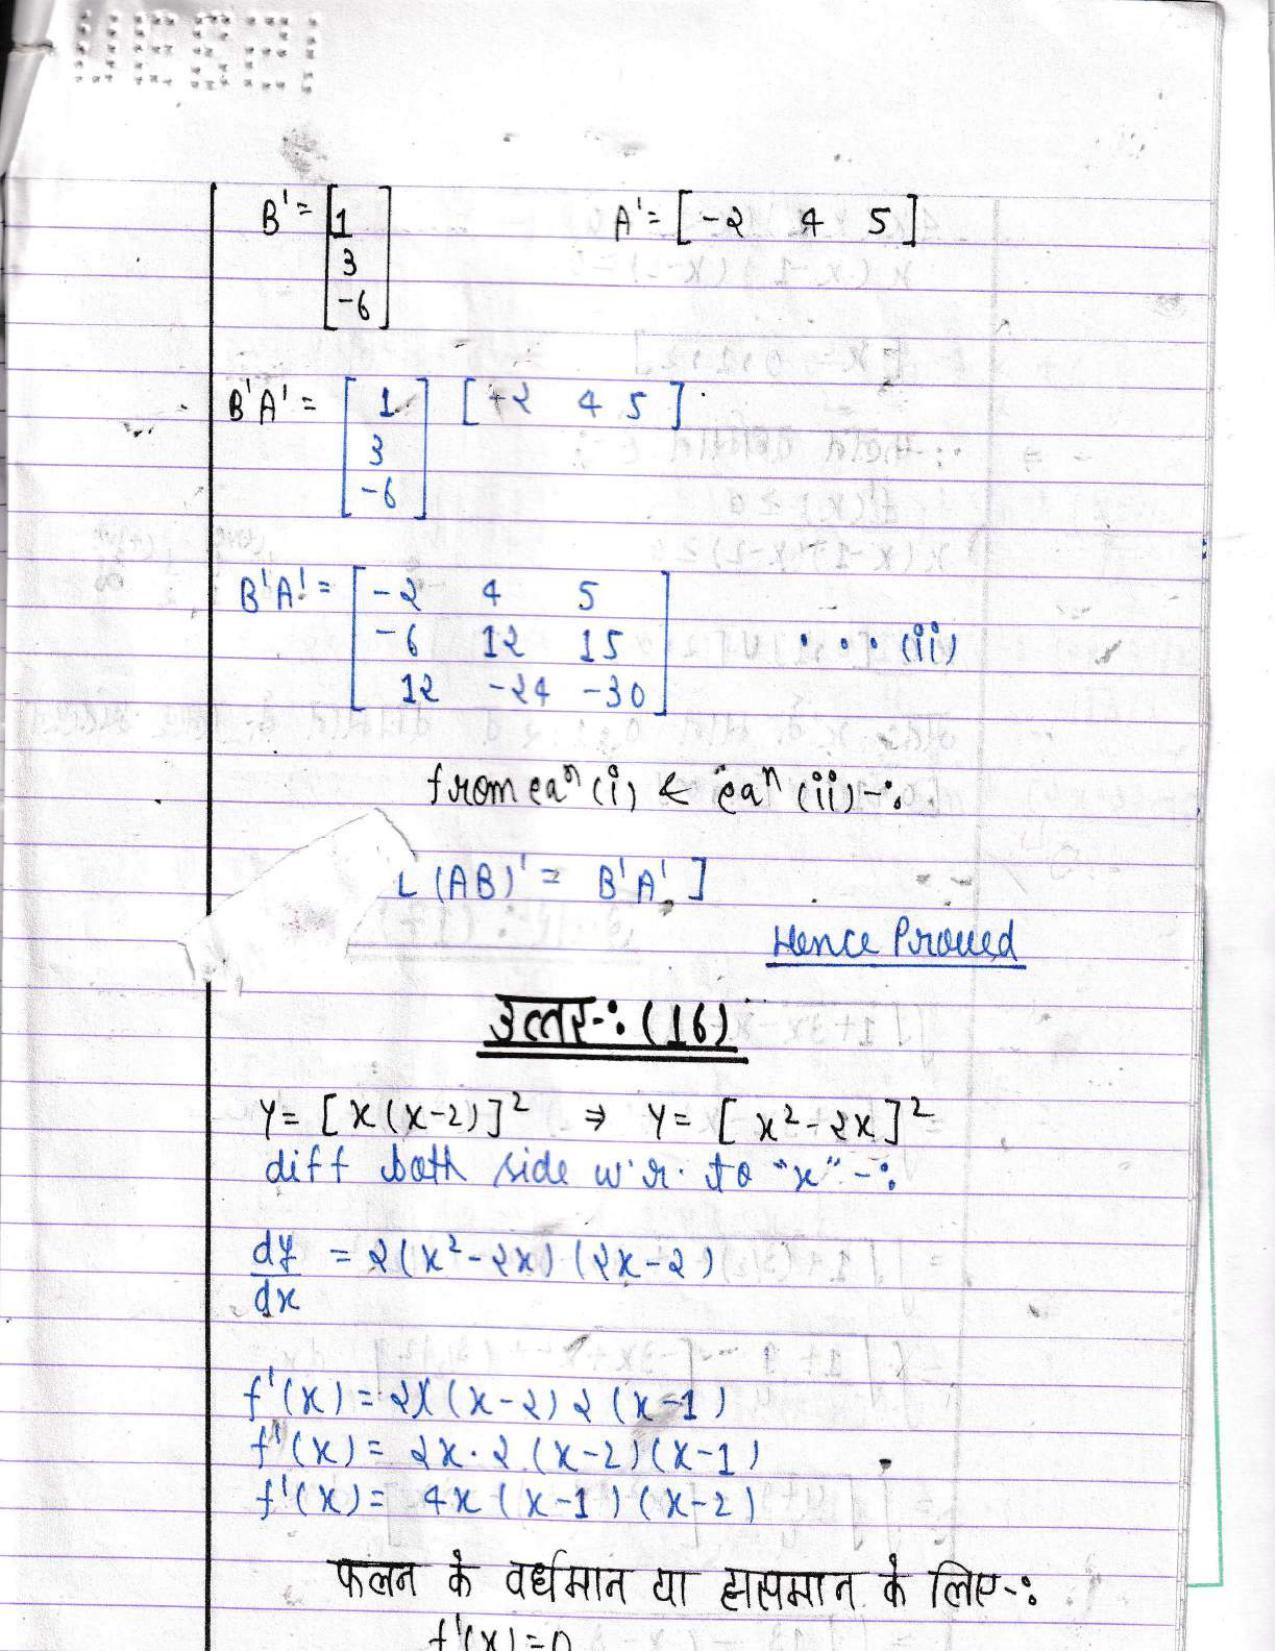 B' = [1      A' = [-2 4 5]
3
-6]
B'A' = [1] [-2 4 5]
3
-6
B'A' = [-2 4 5
-6 12 15 ... (ii)
12 -24 -30]
from eqⁿ (i) & eqⁿ (ii) -:
[(AB)' = B'A']
Hence Proved
उत्तर-: (16)
y = [x(x-2)]² ⇒ y = [x²-2x]²
diff both side w.r. to "x" -:
dy/dx = 2(x²-2x)(2x-2)
f'(x) = 2x(x-2)2(x-1)
f'(x) = 2x·2(x-2)(x-1)
f'(x) = 4x(x-1)(x-2)
फलन के वर्धमान या ह्रासमान के लिए-:
f'(x)=0